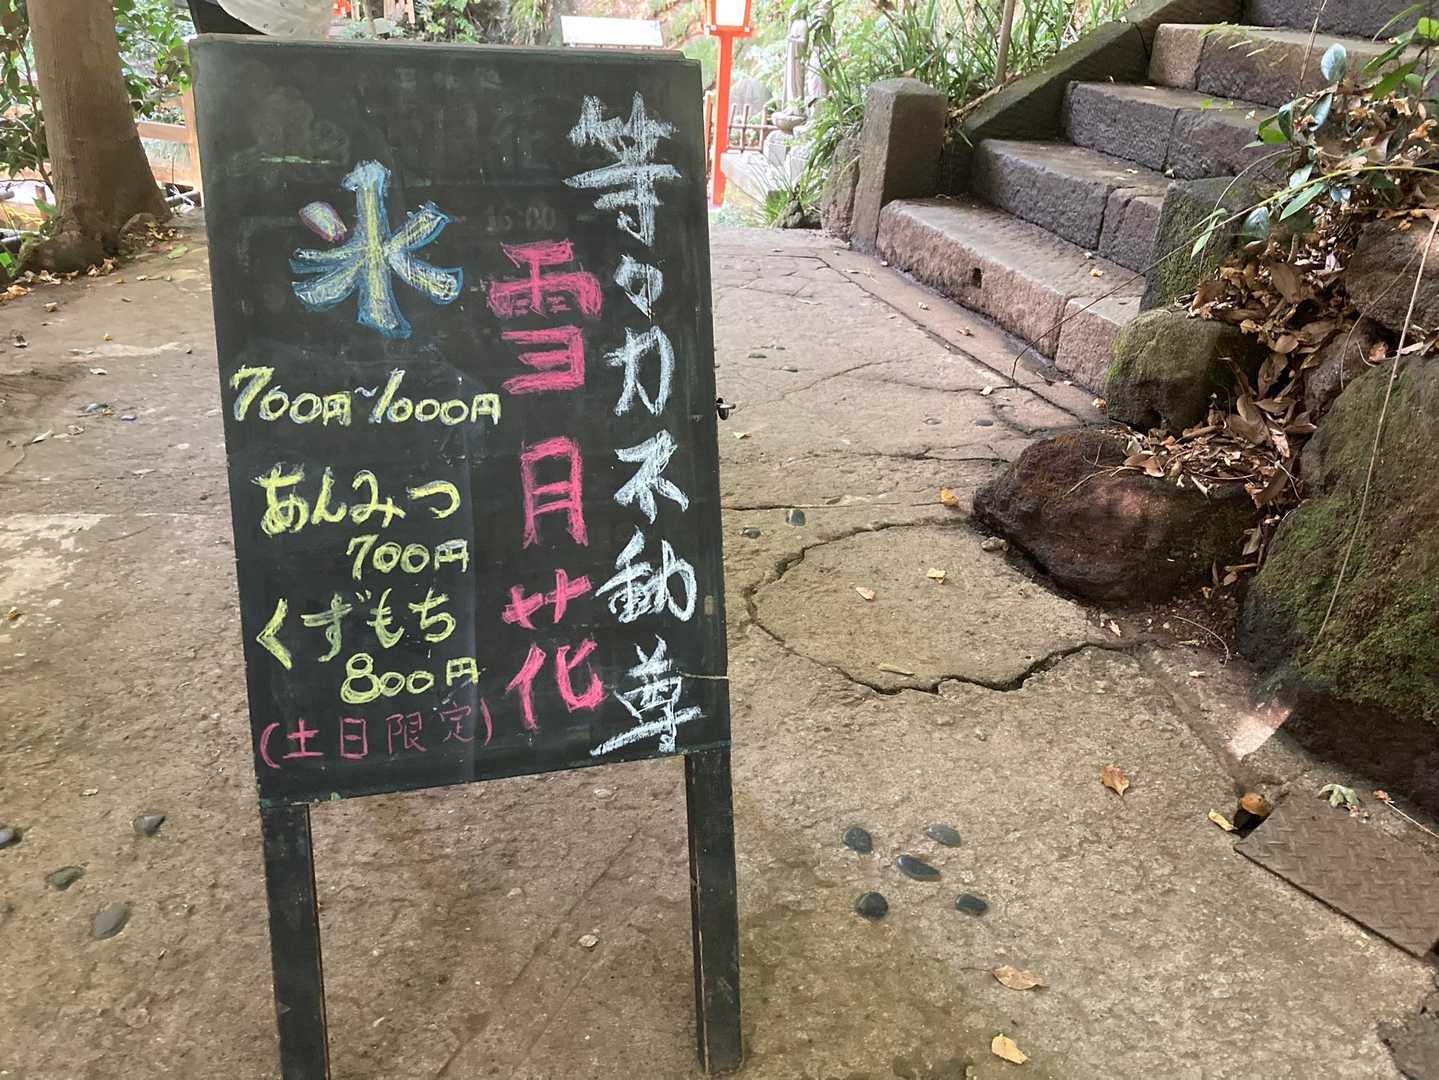 等々力不動尊
雪月花
氷
700円~1000円
あんみつ
700円
くずもち
800円
(土日限定)